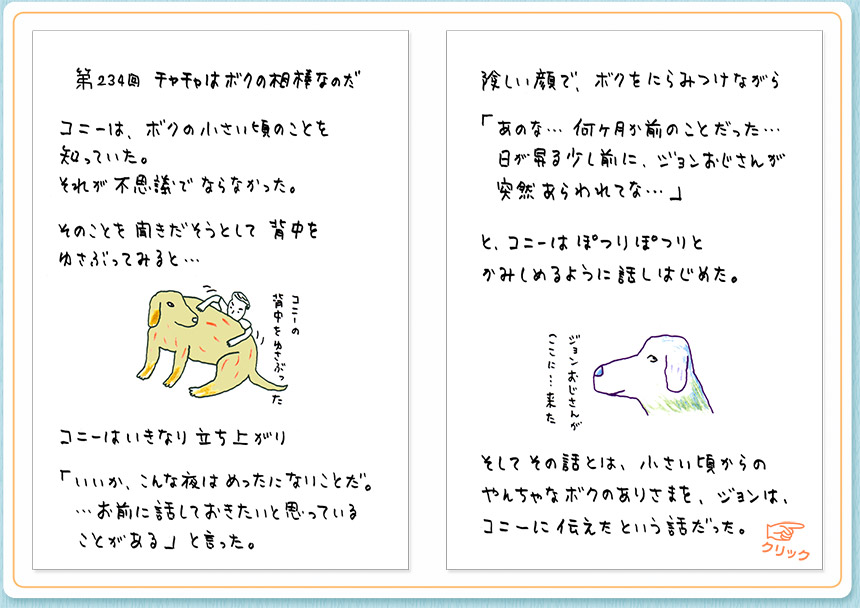 第234回 チャチャはボクの相棒なのだ
コニーは、ボクの小さい頃のことを
知っていた。
それが不思議でならなかった。
そのことを聞きだそうとして 背中を
ゆさぶってみると…
コニーの
背中をゆさぶった
コニーはいきなり立ち上がり
「いいか、こんな夜はめったにないことだ。
…お前に話しておきたいと思っている
ことがある」と言った。
険しい顔で、ボクをにらみつけながら
「あのな… 何ヶ月か前のことだった…
日が昇る少し前に、ジョンおじさんが
突然あらわれてな…」
と、コニーはぽつりぽつりと
かみしめるように話しはじめた。
ジョンおじさんが
ここに…来た
そしてその話とは、小さい頃からの
やんちゃなボクのありさまを、ジョンは、
コニーに伝えたという話だった。
クリック